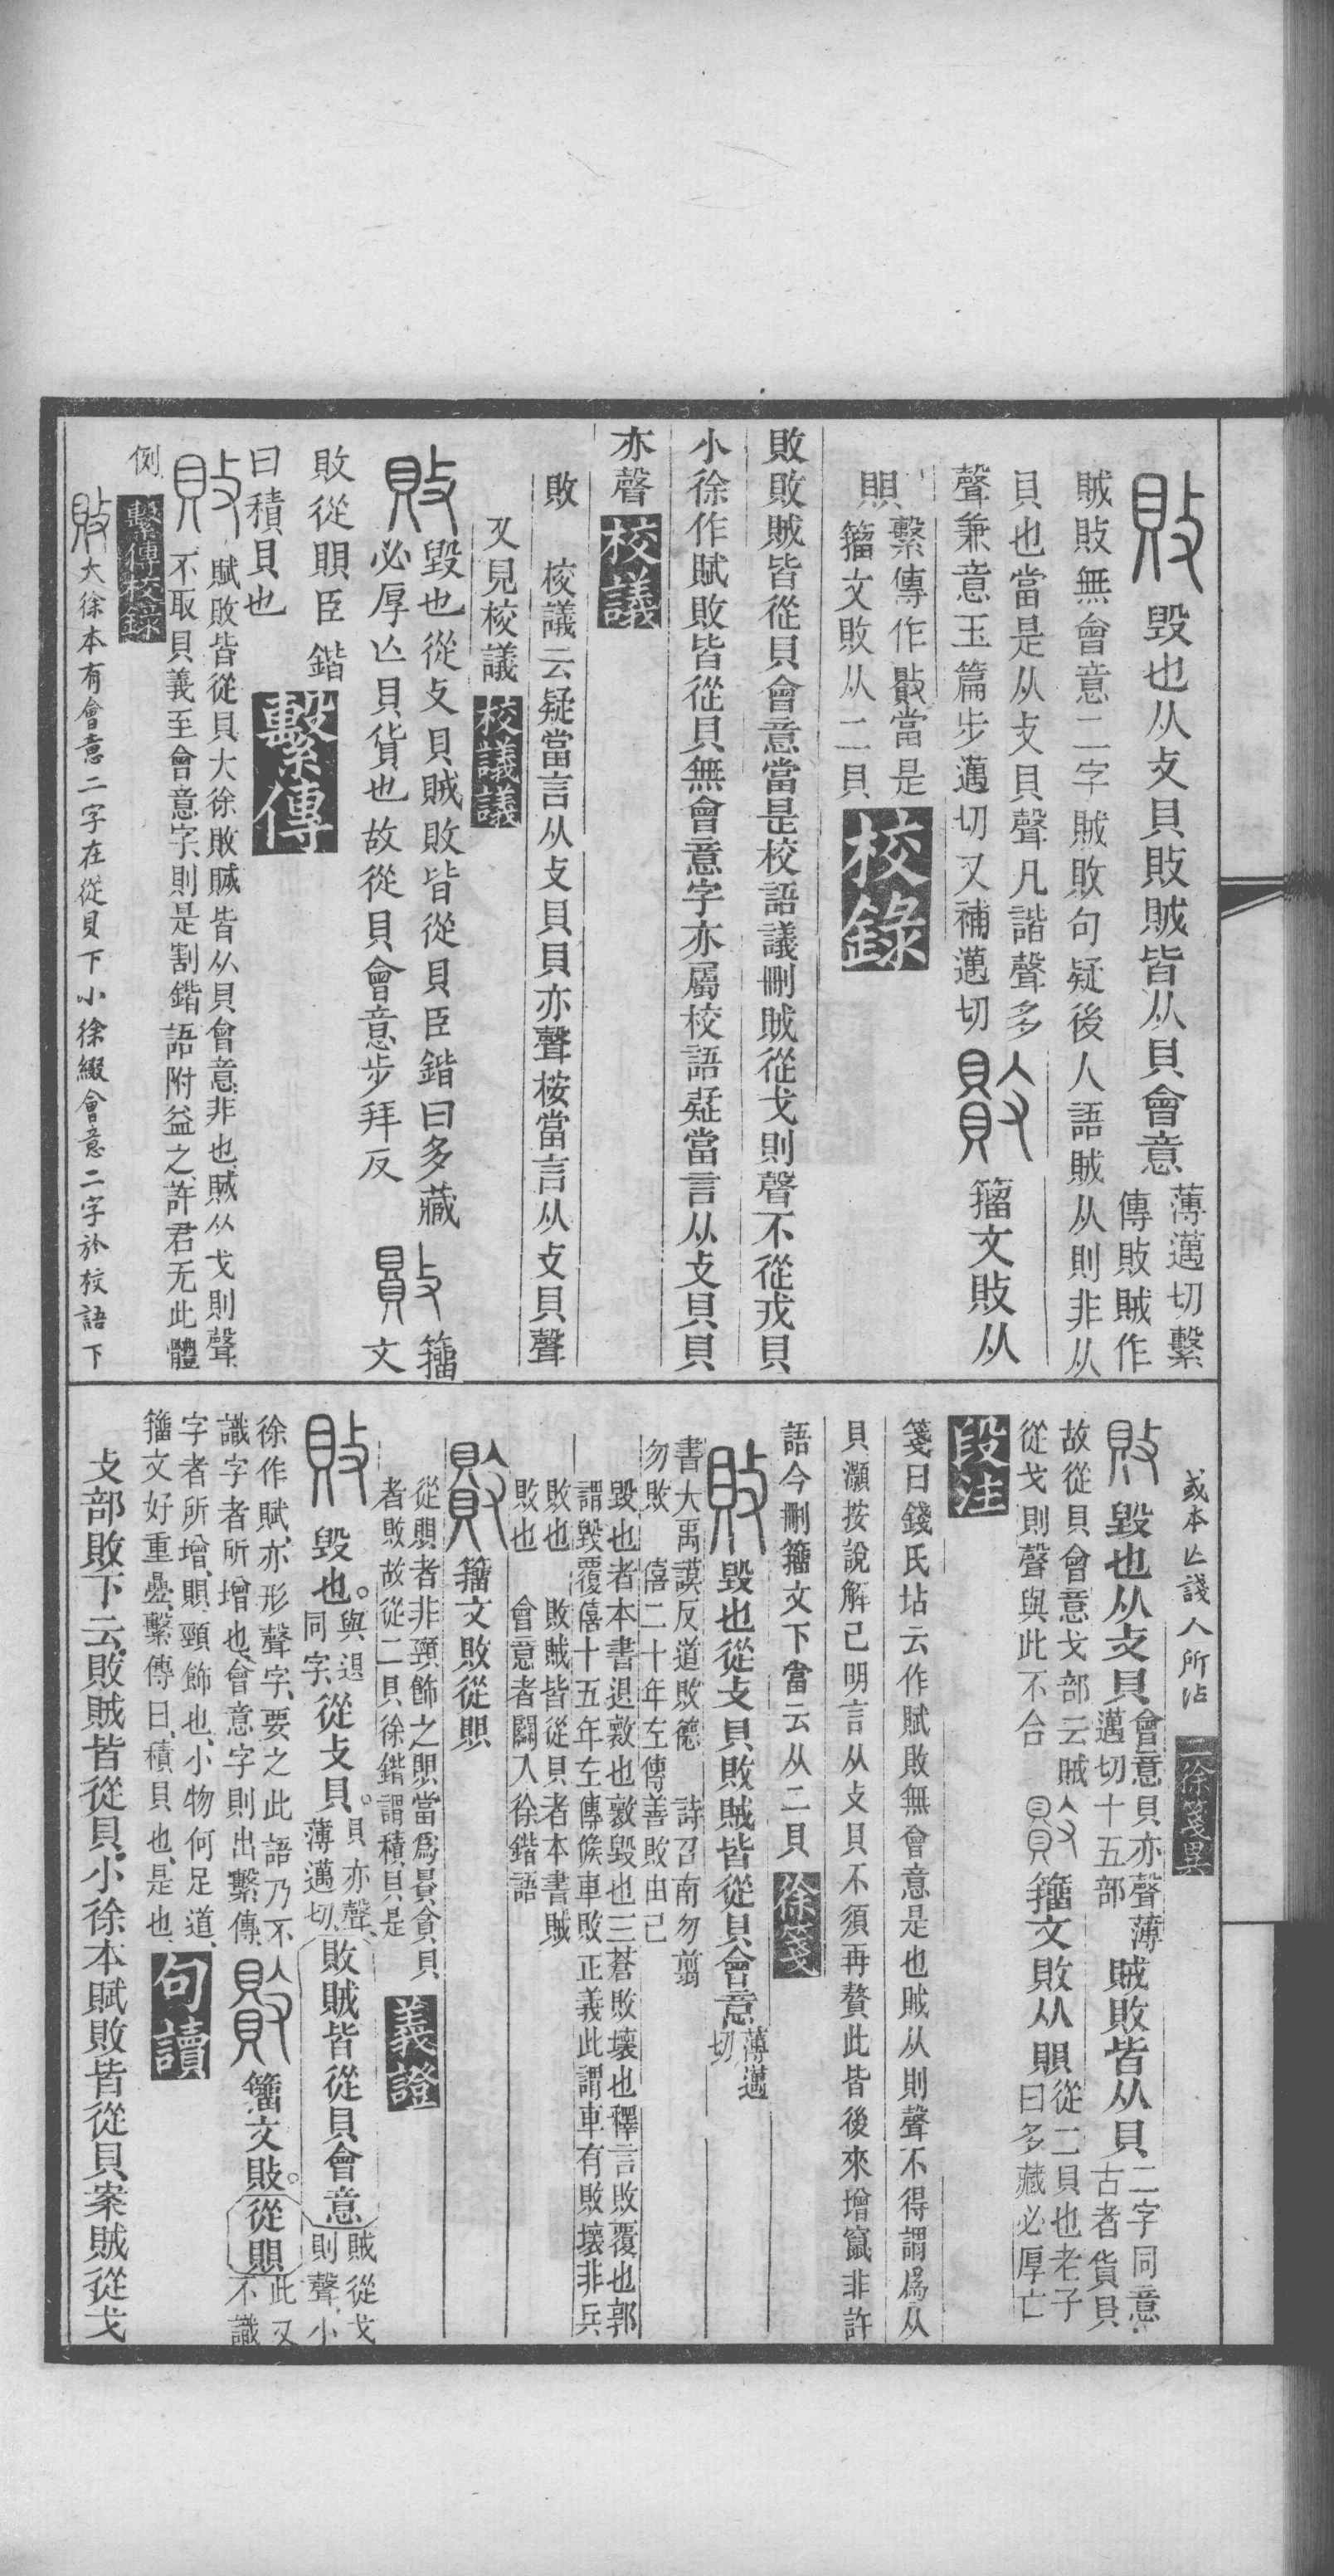 敗
毀也从攴貝敗賊皆从貝會意
薄邁切繫
傳敗賊作
賊敗無會意二字賊敗句疑後人語賊从則非从
貝也當是从攴貝聲凡諧聲多
聲兼意玉篇步邁切又補邁切
籀文敗从
賏
繫傳作當是
籀文敗从二貝
校錄
敗敗賊皆從貝會意當是校語議刪賊從戈則聲不從戎貝
小徐作賦敗皆從貝無會意字亦屬校語疑當言从攴貝貝
亦聲
校議
敗
校議云疑當言从攴貝貝亦聲按當言从攴貝聲
又見校議
校議議
敗
毀也從攴貝賊敗皆從貝臣鍇曰多藏
必厚亾貝貨也故從貝會意步拜反
籀
文
敗從賏臣鍇
曰積貝也
繫傳
敗
賦敗皆從貝大徐敗賊皆从貝會意非也賊从戈則聲
不取貝義至會意字則是割鍇語附益之許君无此體
例
繫傳校錄
敗
大徐本有會意二字在從貝下小徐綴會意二字於校語下
或本亾淺人所沾
二徐箋異
敗
毀也从攴貝
會意貝亦聲薄
邁切十五部
賊敗皆从貝
二字同意
古者貨貝
故從貝會意戈部云賊
從戈則聲與此不合
籀文敗从賏
從二貝也老子
曰多藏必厚亡
段注
箋曰錢氏坫云作賦敗無會意是也賊从則聲不得謂爲从
貝灝按說解已明言从攴貝不須再贅此皆後來增竄非許
語今刪籀文下當云从二貝
徐箋
敗
毀也從攴貝敗賊皆從貝會意
薄邁
切
書大禹謨反道敗德 詩召南勿翦
勿敗 僖二十年左傳善敗由己
毀也者本書退敦也敦毀也三蒼敗壞也釋言敗覆也郭
謂毀覆僖十五年左傳侯車敗正義此謂車有敗壞非兵
敗也 敗賊皆從貝者本書賊
敗也 會意者闕入徐鍇語
籀文敗從賏
從賏者非頸飾之賏當爲貝貪貝
者敗故從二貝徐鍇謂積貝是
義證
敗
毀也。
與退
同字、
從攴貝。
貝亦聲、
薄邁切、
敗賊皆從貝會意
賊從戈
則聲、小
徐作賦、亦形聲字、要之此語乃不
識字者所增也、會意字則出繫傳、
籀文敗。從賏
此又
不識
字者所增、賏、頸飾也、小物何足道、
籀文好重曡、繫傳曰、積貝也、是也、
句讀
攴部敗下云、敗賊皆從貝、小徐本賦敗皆從貝、案賊從戈